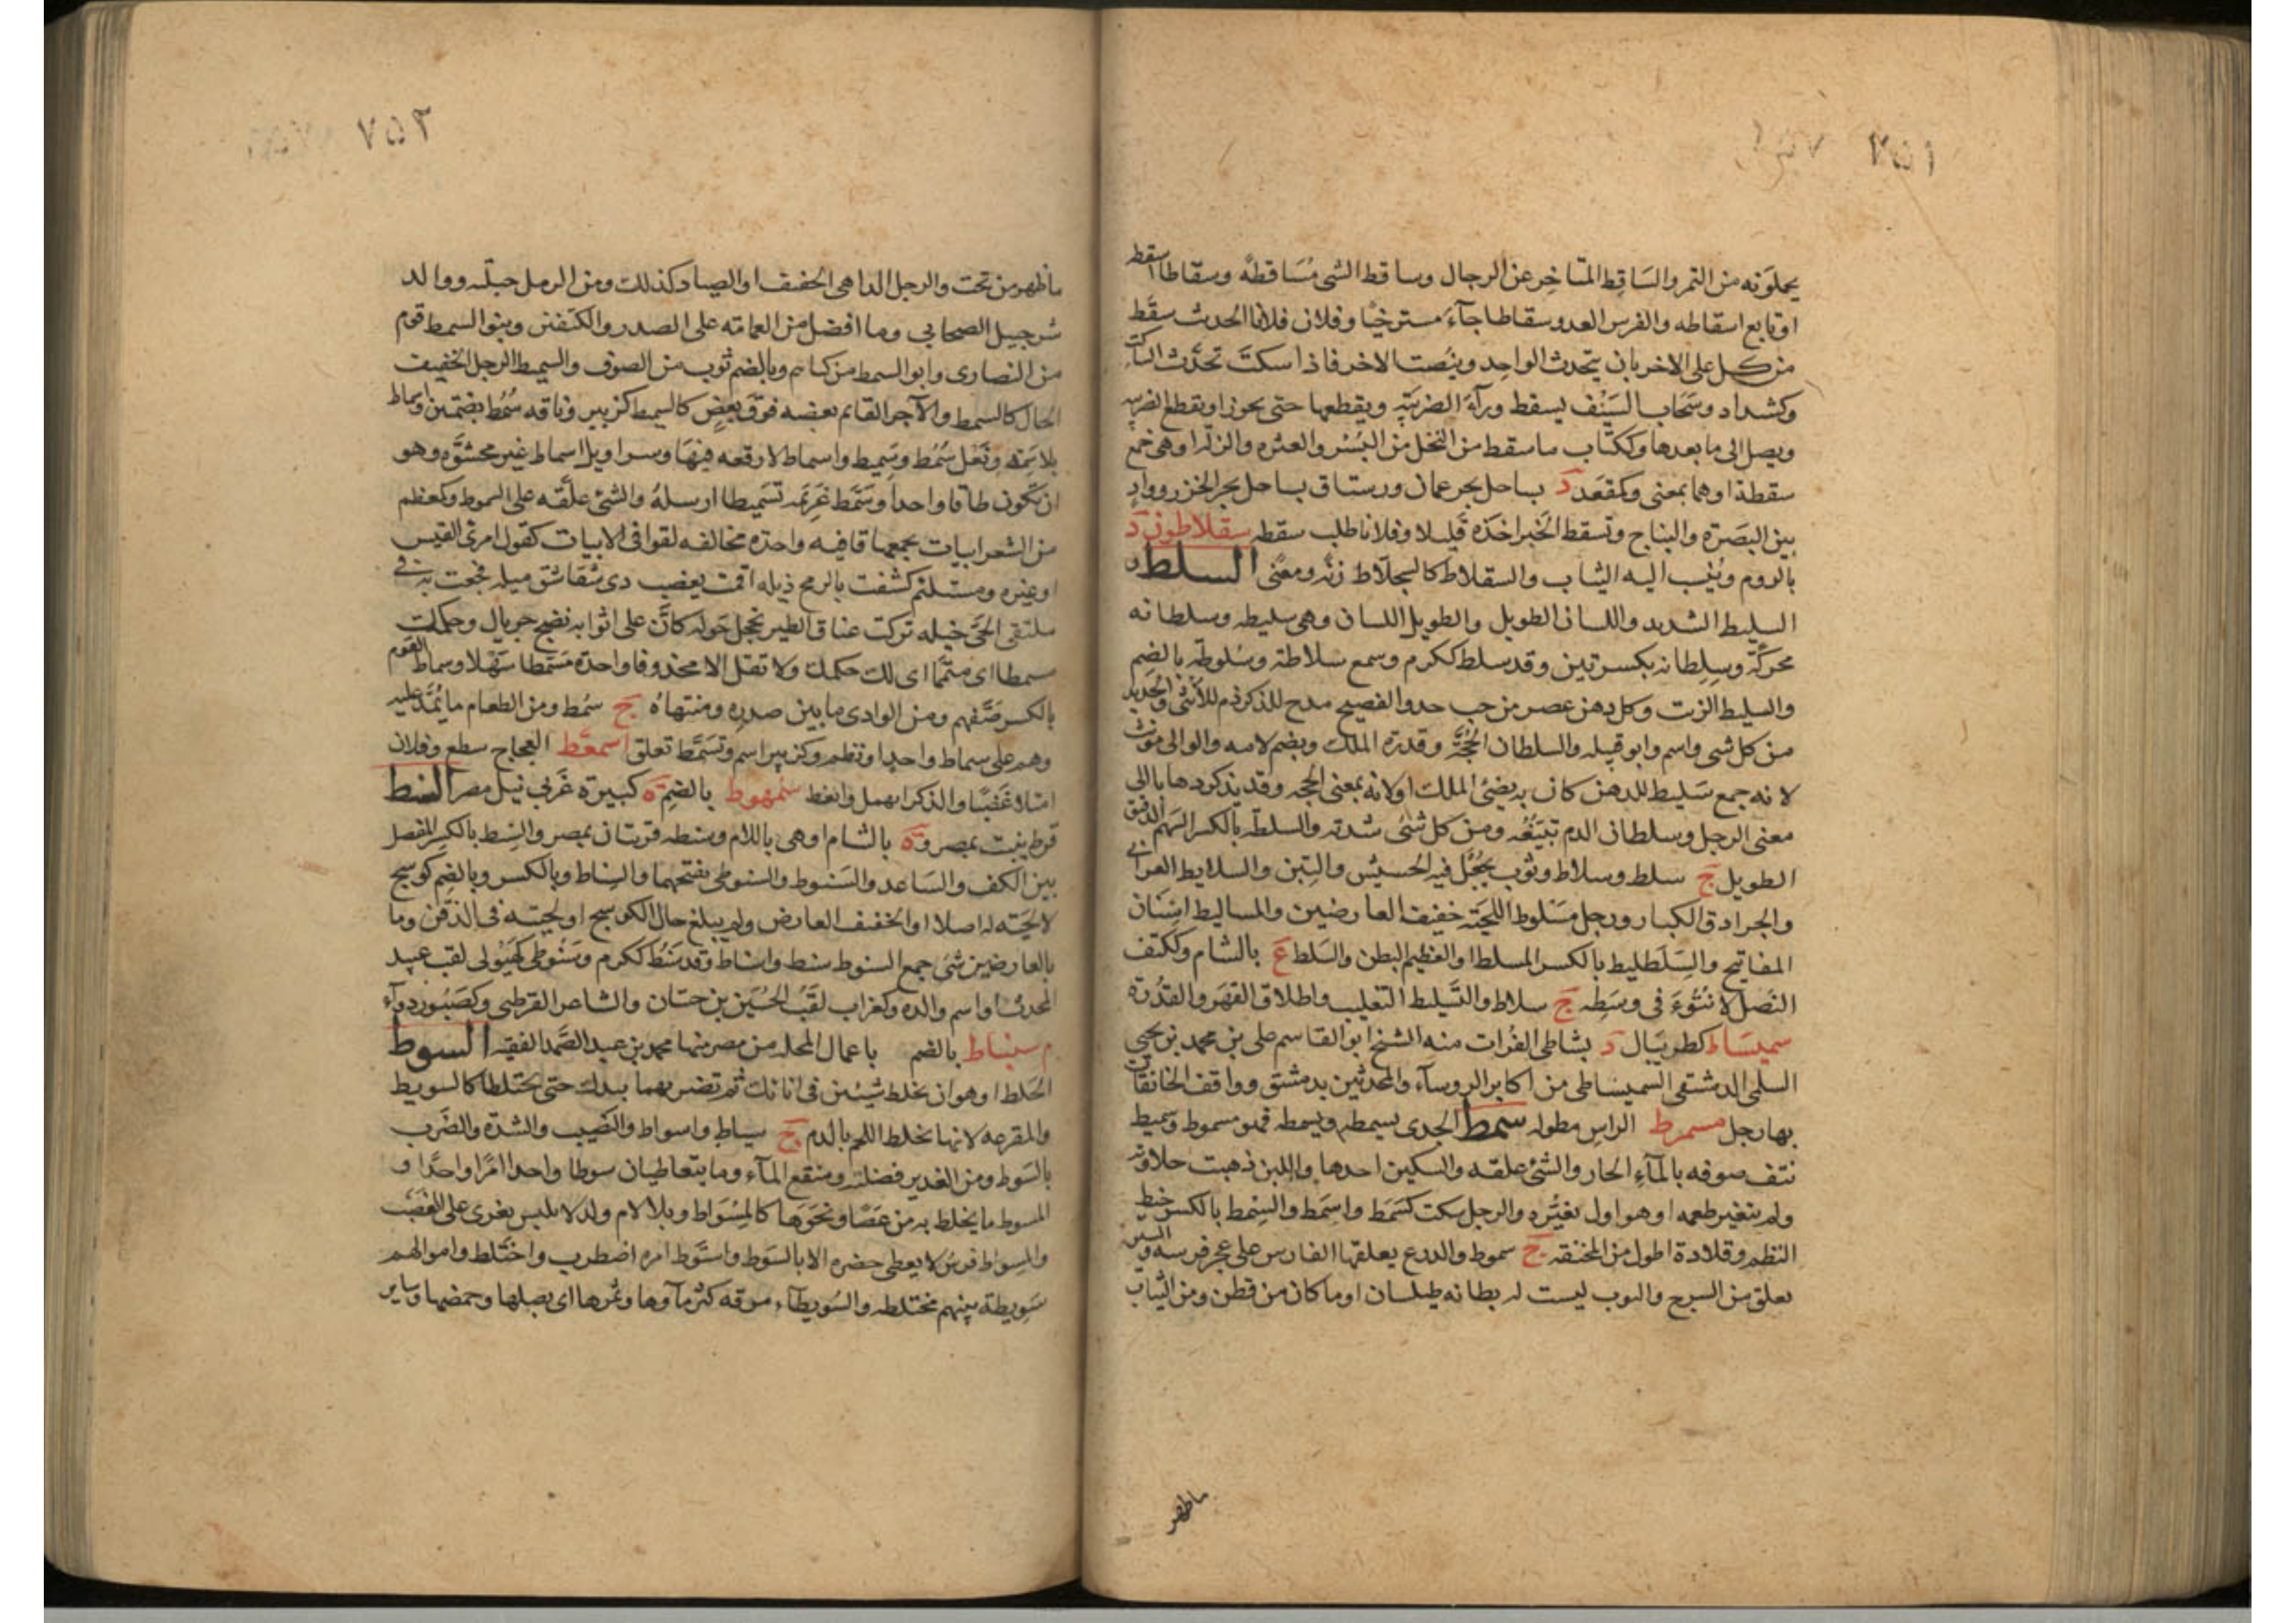 ٧٥١
يحملونه من التمر والسَاقِط المتاخِر عن الرجال وساقط الشى مُسَاقطةً وسقاطا اسقط
او تابع اسقاطه والفرس العدو سقاطا جآءَ مسترخيًا وفلان فلانا الحدث سقَط
من كل على الاخر بان يتحدث الواحد وينصت الاخر فاذا سكت تحدَّث الساكت
وكشداد وسَحَاب السَيْف يسقط ورآءَ الضريبَه ويقطعها حتى يجوز او يقطع الضريبه
ويصل الى ما بعدها وككتاب ما سقط من النخل من البُسْر والعثره والزلة او هى جمع
سقطة او هما بمعنى وكمقعَد د بساحل بحر عمان ورستاق بساحل بحر الخزر ووادٍ
بين البَصَرَة والنباج وتسقط الخبر اخذَه قليلا وفلانا طلب سقطه سقلاطون د
بالروم ويُنسب اليه الثياب والسقلاط كالسِجلّاط زنةً ومعنًى السلط و
السليط الشديد واللسان الطويل والطويل اللسان وهى سليطه وسلطانه
محرّكَة وسِلِطانه بكسرتين وقد سلط ككرم وسمع سلاطة وسُلوطَة بالضِم
والسليط الزيت وكل دهن عصر من حب حد والفصيح مدح للذكر ذم للأنثى والحديد
من كل شى واسم وابو قبيله والسلطان الحُجَّةُ وقدرة الملك ويضم لامه والوالى مونث
لانه جمع سَليط للدهن كان به يضئ الملك او لانه بمعنى الحجه وقد يذكر ذهابا الى
معنى الرجل وسلطان الدم تبَيّغُه ومن كل شئ شدته والسلطة بالكسر السَهم الدقيق
الطويل ج سلط وسلاط وثوب يجُعَل فيه الحسيش والتِبن والسلايط الفرانى
والجرادق الكبار ورجل مسْلوط اللحيَة خفيف العارضين والمساليط اسْنَان
المفاتيح والسِّلَطليط بالكسر المسلط او العظيم البطن والسَلط ع بالشام وككتف
النَصَل لا نُتُوءَ فى وسَطِه ج سلاط والتَسليط التغليب واطلاق القَهَر والقدُرة
سميسَاط كطربيال د بشاطى الفرات منه الشيخ ابو القاسم على بن محمد بن يحيى
السلمى الدمشقى السميساطى من اكابر الروسآء والمحدثين بدمشق وواقف الخانقات
بها رجل مسمرط الراس مطوله سمط الجدى يسمطه ويسمطه فهو مسموط وسميط
نتف صوفه بالمآءِ الحار والشئ علقه والسكين احدها واللبن ذهبت حلاوته
ولم يتغير طعمه او هو اول تغيُّره والرجل سكت كسَمَط واسمَط والسِمْط بالكسر خيط
النظم وقلادة اطول من المخنقه ج سموط والدرع يعلقها الفارس على عجز فرسه والسير
يعلق من السرج والثوب ليست له بطانه طيلسان او ما كان من قطن ومن الثياب
ماظهر
٧٥٢
ماظهر من تحت والرجل الداهى الخفيف او الصياد كذلك ومن الرمل حبله ووالد
شرحبيل الصحابي وما افضل من العمامة على الصدر والكتفين وبنو السمط قوم
من النصارى وابو السمط من كناهم وبالضم ثوب من الصوف والسميط الرجل الخفيف
الحال كالسمط والآجر القايم بعضه فوقَ بعضٍ كالسميط كزبير وناقه سُمُط بضمتين واسماط
بلا سَمَة ونَعَل سُمُط وسَمِيط واسماط لا رقعه فيهَا وسراويل اسماط غير محشوّه وهو
ان تكون طاقا واحدا وسَمَّط غَرِيَمه تَسَميطا ارسلهُ والشئ علّقه على السموط وكمعظم
من الشعر ابيات يجمعها قافيه واحدة مخالفه لقوافى الابيات كقول امرئ القيس
او غيره ومستلئم كشفت بالرمح ذيله اقمت بعضب ذى شقاشق ميله فجعت به فى
ملتقى الحَىّ خيله تركت عتاق الطير تحجل حوله كانَّ على اثوابه نضح جريال وحكمك
مسمطا اى متمَّما اى لك حكمك ولا تقل الا محذوفا واحدَة مَسَمطا سَهْلا وسماط القوم
بالكسر صَفّهم ومن الوادى ما بين صدره ومنتهاهُ ج سُمُط ومن الطعام ما يُمَدّ عليه
وهم على سماط واحد او نظم وكزبير اسم وتَسَمَّط تعلق اسمعَّط العجاج سطع وفلان
امتلا غَضَبًا والذكر اتمهل وانعظ سمُهوط بالضِم ة كبيرَة غَربي نيل مصر السنط
قرظ ينبت بمصر و ة بالشام او هى باللام وسنطه قريتان بمصر والسِنط بالكسِر المفصل
بين الكف والسَاعد والسَنوط والسنوطى بفتحهما والسِناط وبالكسر وبالضِم كوسج
لا لحيَته له اصلا او الخفيف العارض ولم يبلغ حال الكوسج او لحيته فى الذقن وما
بالعارضين شئ جمع السنوط سنط واسناط وقد سَنُط ككرم وسَنُوطى كهَيُولى لقب عبيد
المحدث او اسم والده وكغراب لقَبُ الحُسَين بن حسّان والشاعر القرطبى وكصَبُور دوآء
م سنباط بالضم باعمال المحله من مصر منها محمد بن عبد الصَّمد الفقيه السوط
الخلط او هو ان تخلط شيئين فى انائك ثم تضربهما بيدك حتى يختلطا كالسويط
والمقرعه لانها تخلط اللحم بالدم ج سياط واسواط والنصيب والشدّة والضَرب
بالسَوط ومن الغدير فضلته ومنقع المآء وما يتعاطيان سوطا واحدا امرًا واحدًا و
المسوط ما يخلط به من عَصًا ونحوَهَا كالمِسْوَاط وبلا لام ولد لابليس يغرى على الغَضَب
والمِسواط فرسٌ لا يعطى حضره الا بالسَوط واستَوط امره اضطرب واختَلط واموالهم
سَوِيطة بينهم مختلطه والسَويطآء مرقه كثر مآوها وثمرها اى بصلها وحمصها وساير